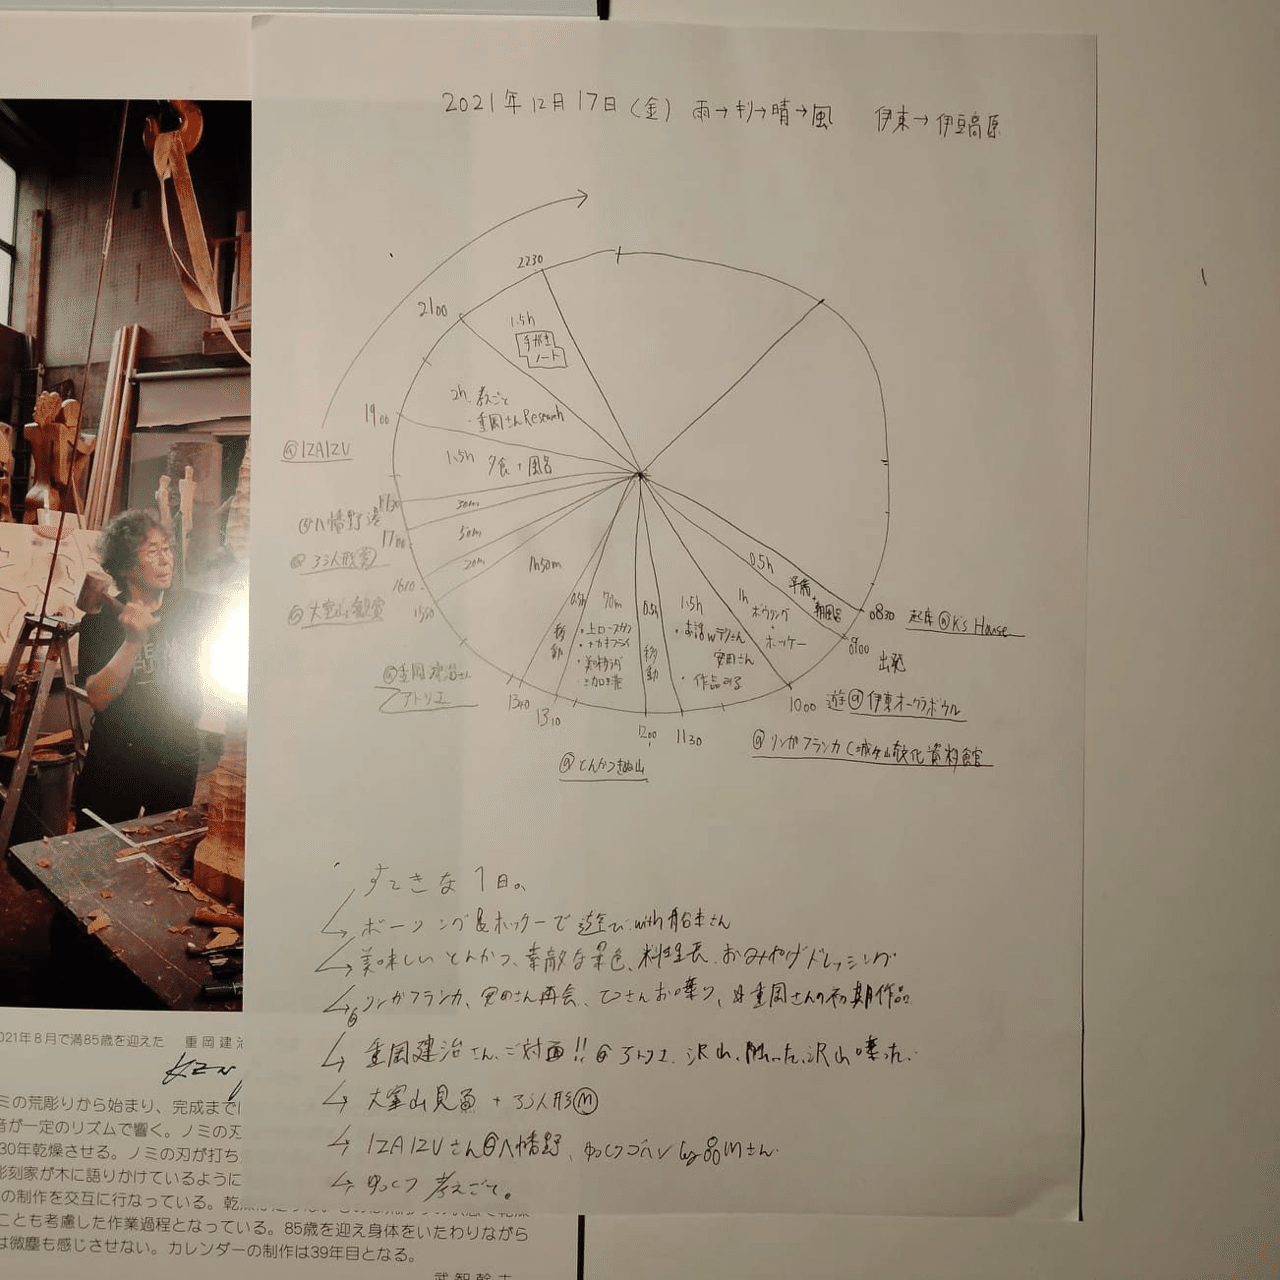 2021年12月17日(金) 雨→キリ→晴→風 伊東→伊豆高原
2230
2100
1.5h
手がき
ノート
2h. 考えごと
・重岡さんResearch
1900
@IZAIZU
1.5h 夕食+風呂
1730
30m
@八幡野港
1700
50m
@ろう人形
20m
1610
@大室山
1550
1h50m
@重岡建治さん
アトリエ
0.5h
移動
70m
・上ロースカツ
・カキフライ
1340
1310
0.5h
移動
1200
@とんかつきぬ山
1.5h
・お話wテリさん
安田さん
・作品みる
1130
1h
ボウリング
・
ホッケー
0.5h
早席
+
朝風呂
0830 起床@K's House
0900
出発
1000 遊@伊東オークラボウル
@リンガフランカ(城ヶ崎文化資料館
すてきな1日。
ボーリング&ホッケーで遊び with船本さん
美味しいとんかつ、素敵な景色、料理長、おみやげドレッシング
リンガフランカ、安田さん再会、さんお喋り、重岡さんの初期作品
重岡建治さん、ご対面!!@アトリエ、沢山、触った、沢山喋った。
大室山見 + ろう人形M
IZAIZUさん@八幡野、ゆっくりゴハン by 品Mさん
ゆっくり考えごと。
021年8月で満85歳を迎えた 重岡建治
ミの荒彫りから始まり、完成まで
音が一定のリズムで響く。ノミの刃
30年乾燥させる。ノミの刃が打ち
彫刻家が木に語りかけているように
の制作を交互に行なっている。乾
ことも考慮した作業過程となっている。85歳を迎え身体をいたわりながら
は微塵も感じさせない。カレンダーの制作は39年目となる。
武智幹夫